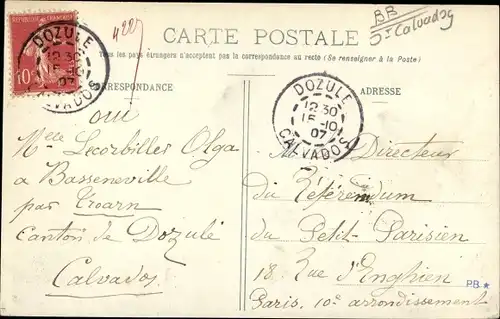 RÉPUBLIQUE FRANÇAISE
10
DOZULÉ
12 30
15 -10
07
CALVADOS
4227
CARTE POSTALE
BB
Calvados
Tous les pays étrangers n'acceptent pas la correspondance au recto (Se renseigner à la Poste)
CORRESPONDANCE
ADRESSE
DOZULE
12 30
15 -10
07
CALVADOS
oui
Melle Lecorbillet Olga
a Basseneville
par Troarn
Canton de Dozulé
Calvados
M Directeur
du Référendum
du Petit-Parisien
18 Rue d'Enghien
Paris. 10e arrondissement
PB *